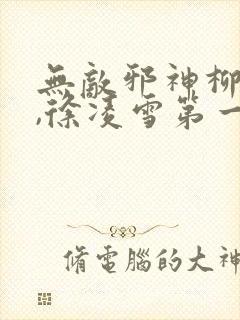 無敵邪神柳
,徐凌雪第一
脩電腦的大神